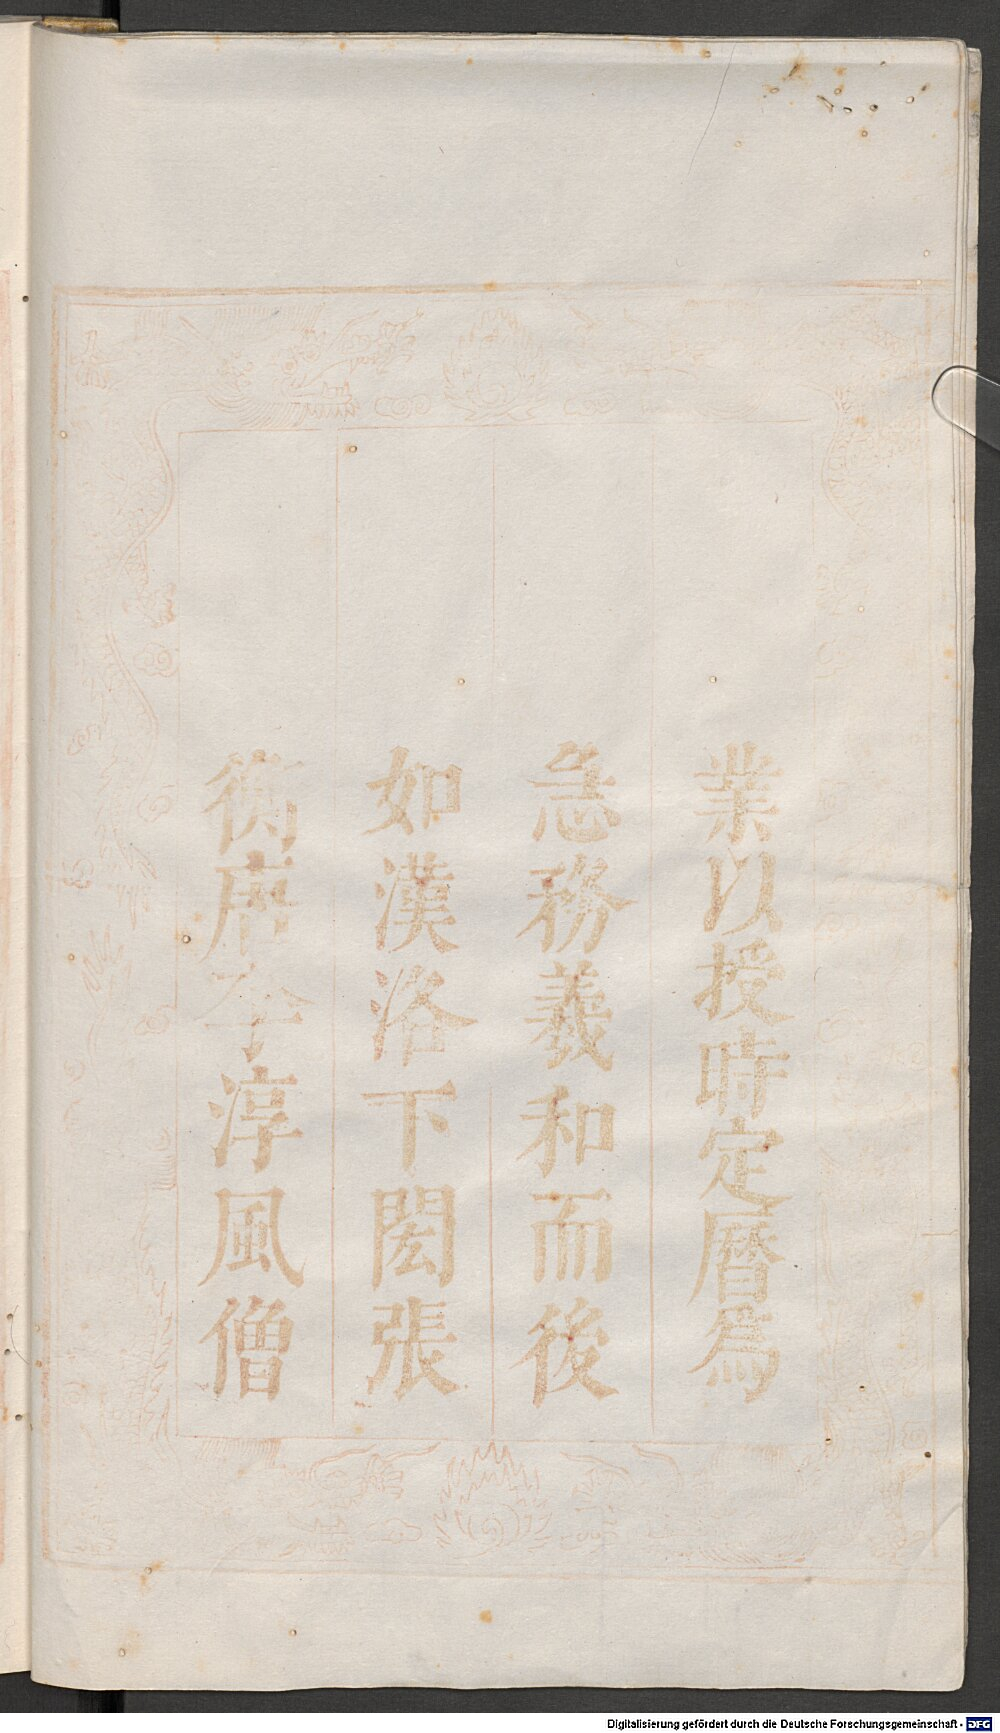 業以授時定曆爲
急務羲和而後
如漢洛下閎張
衡唐李淳風僧
Digitalisierung gefördert durch die Deutsche Forschungsgemeinschaft - DFG